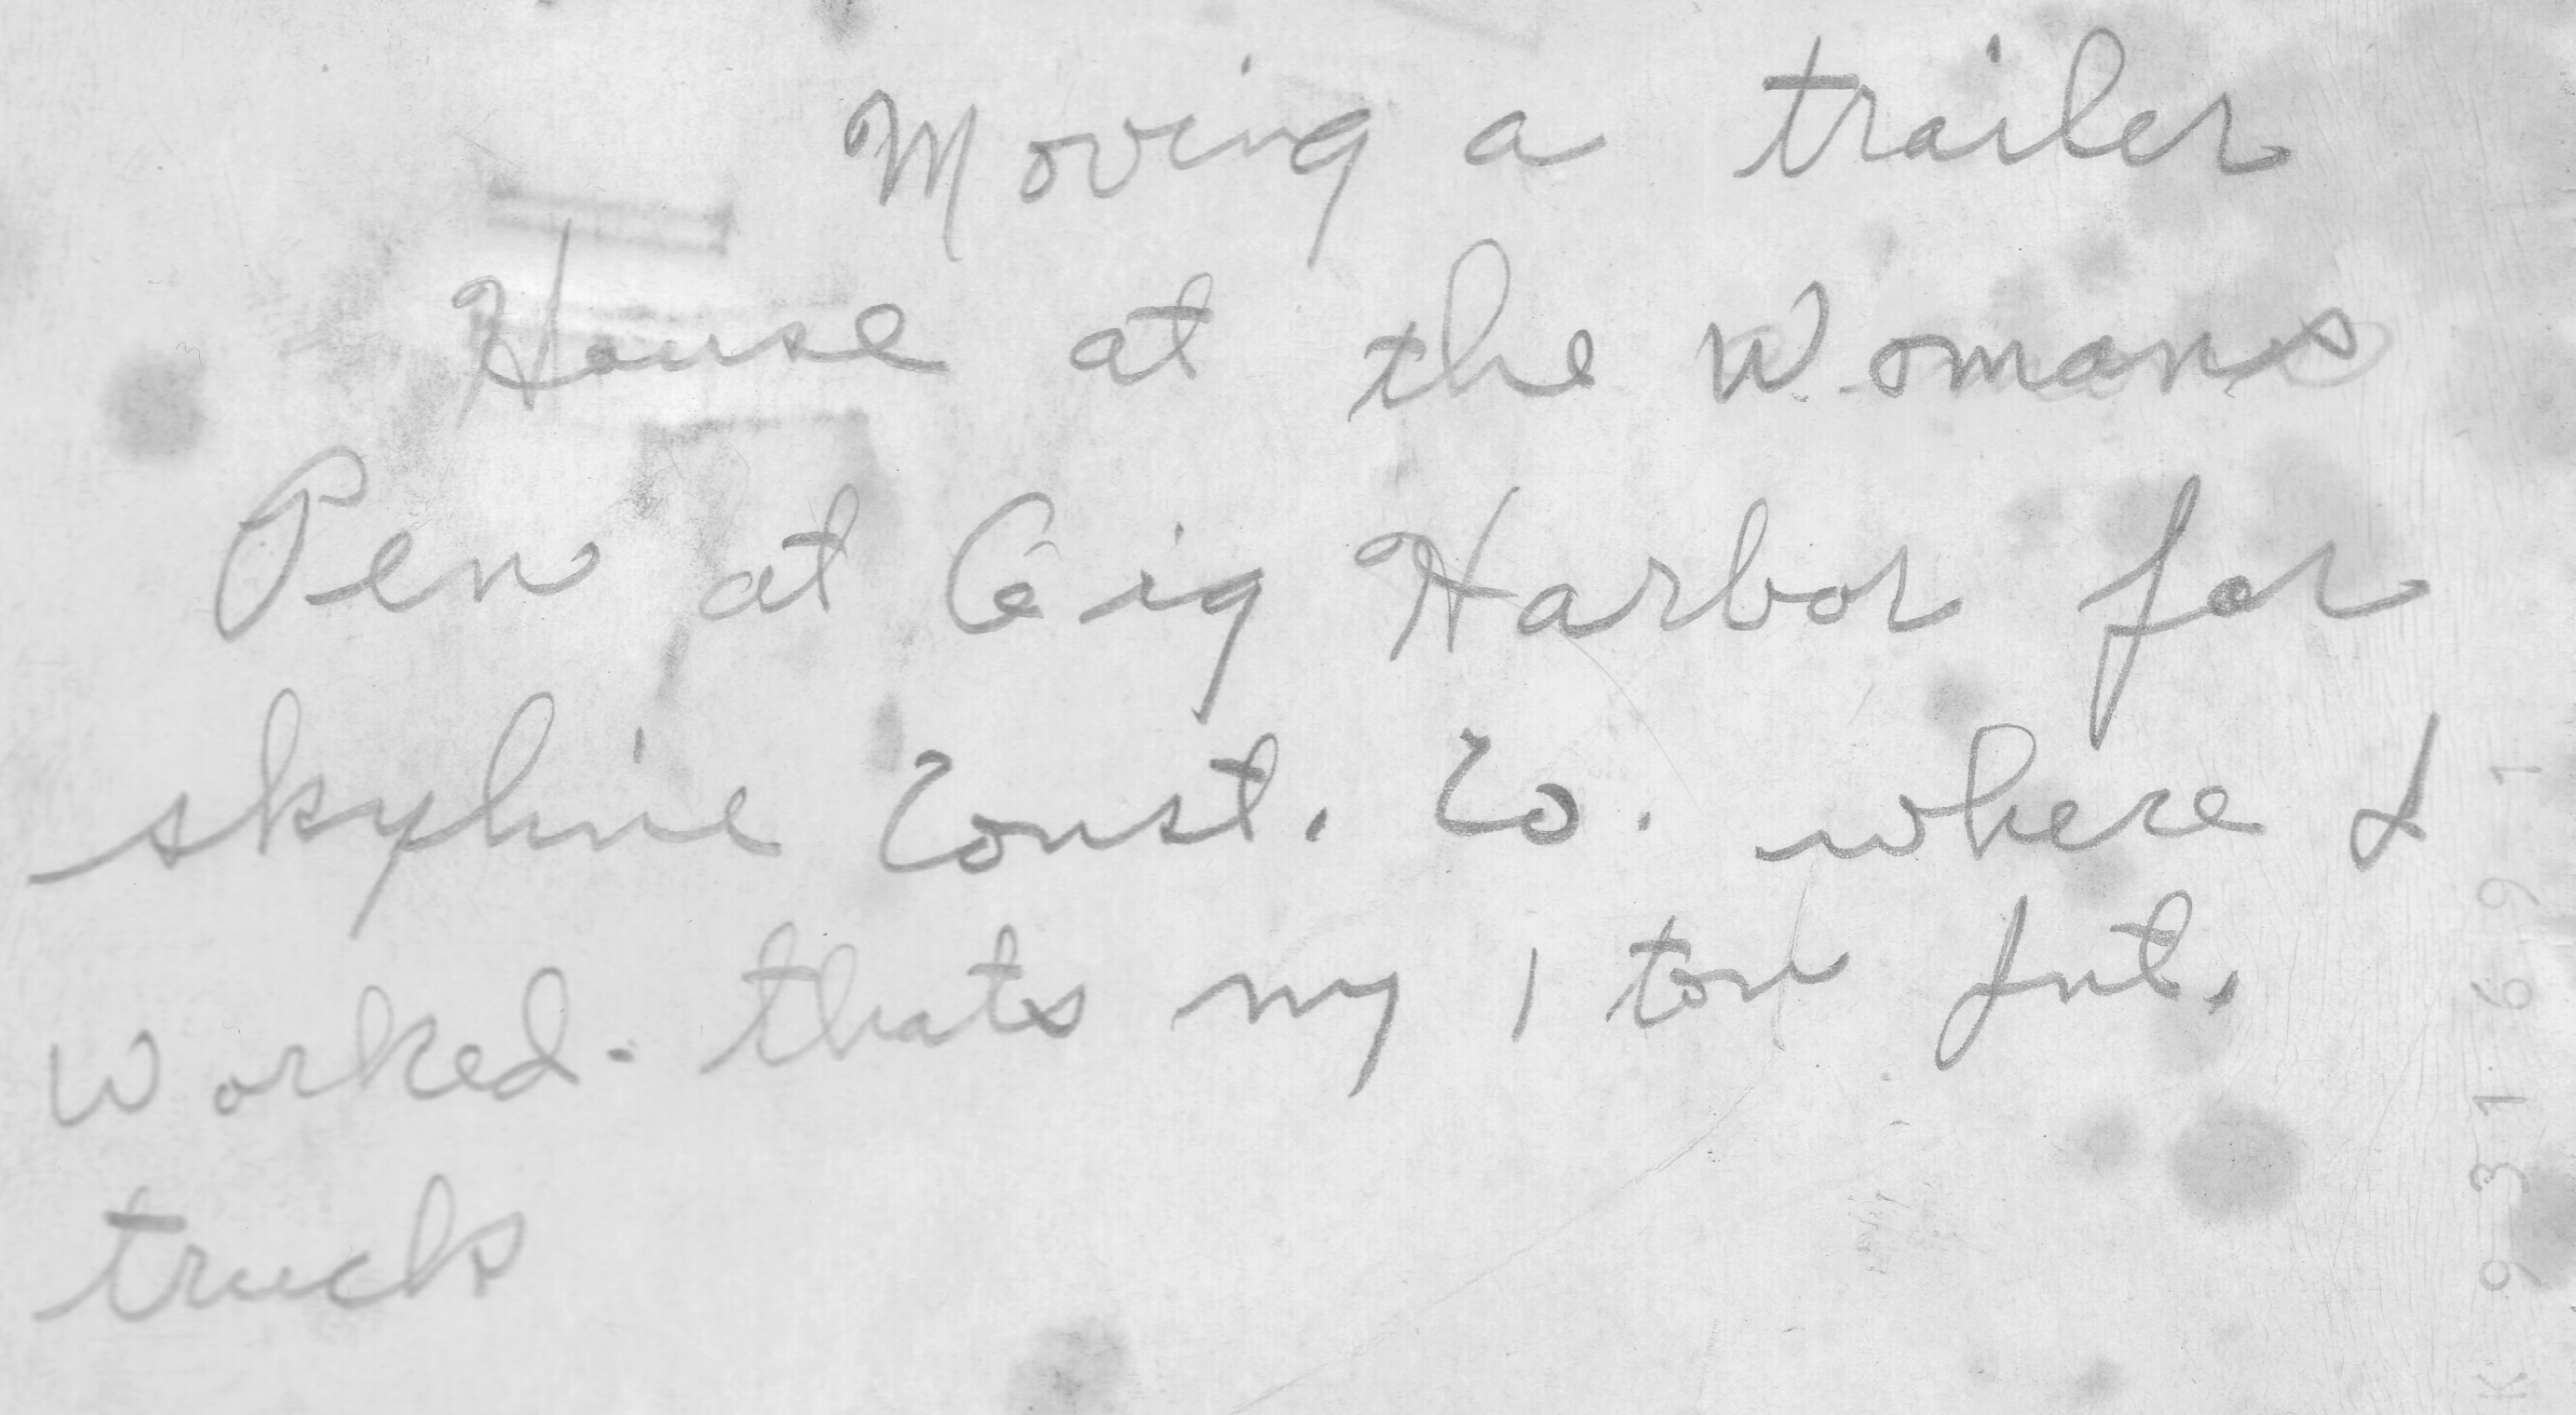 Moving a trailer
House at the Womans
Pen at Gig Harbor for
skyline Const. Co. where I
worked. thats my 1 ton Int.
truck
K9316691